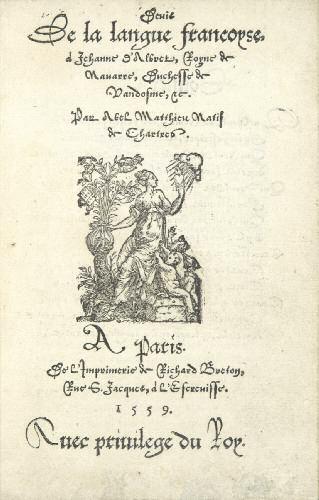 Deuis
De la langue francoyse,
á Jehanne d'Albret, Royne de
Nauarre, Duchesse de
Vandosme, &c.
Par Abel Matthieu Natif
de Chartres.
A Paris.
De l'Imprimerie de Richard Breton,
Rue S. Jacques, á l'Escreuisse.
1559.
Auec priuilege du Roy.